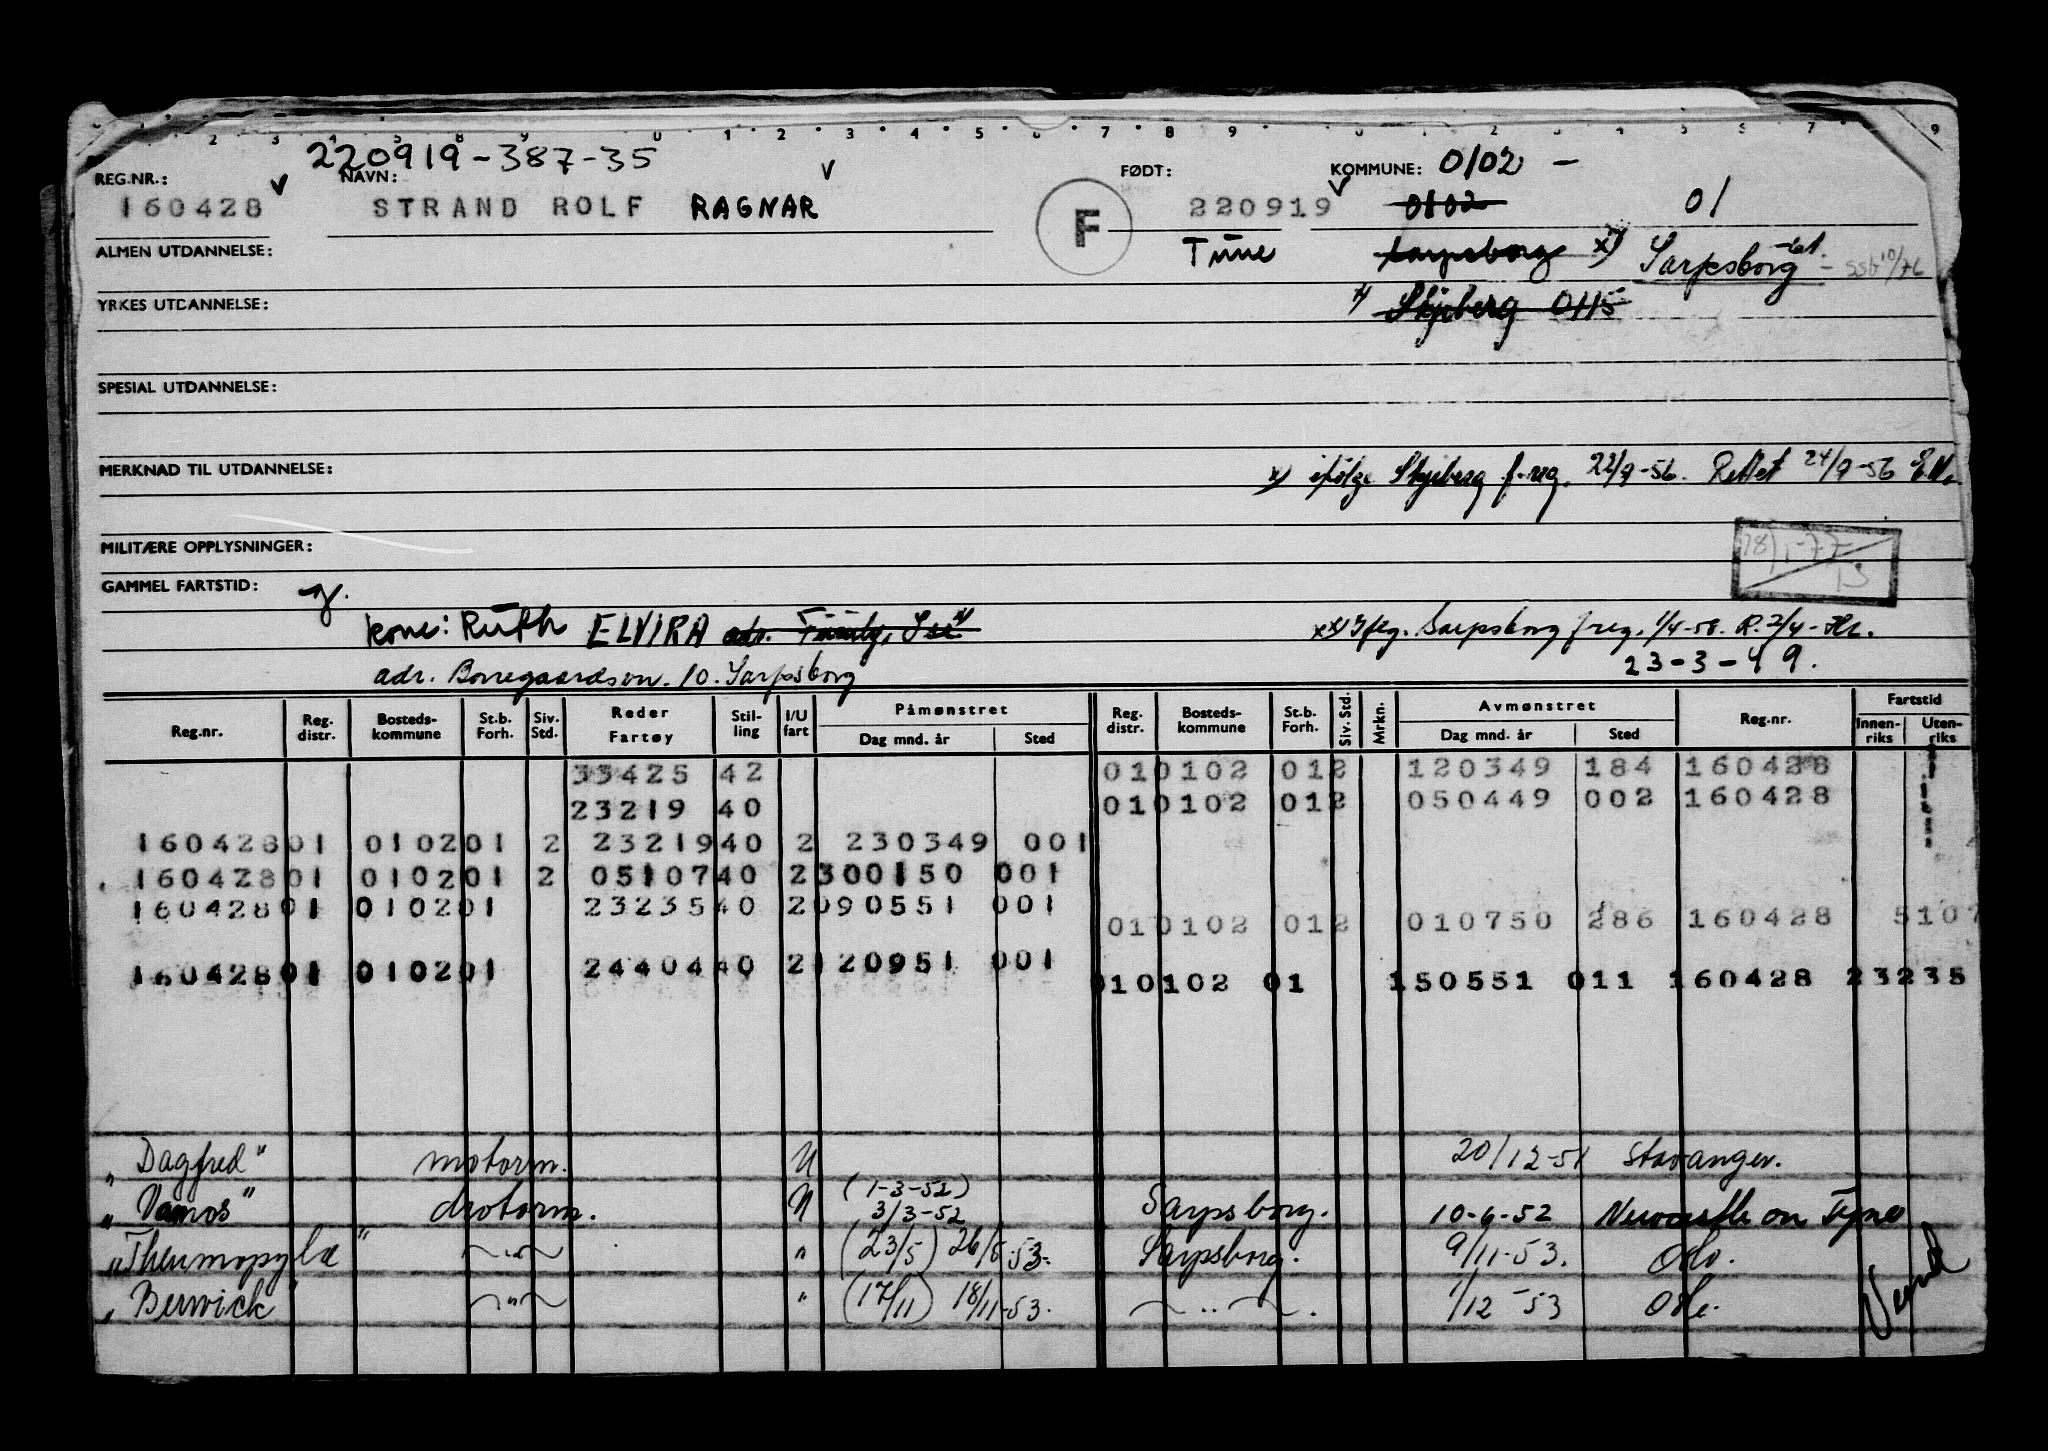 220919-387-35
REG.NR.: NAVN: FØDT: KOMMUNE: 0102 -
160428 STRAND ROLF RAGNAR F 220919 0102 01
ALMEN UTDANNELSE: Tune Sarpsborg x) Sarpsborg
YRKES UTDANNELSE: x) Skjeberg 0115
SPESIAL UTDANNELSE:
MERKNAD TIL UTDANNELSE: x) ifølge Skjeberg f.reg. 22/9-56. Rettet 24/9-56 E.N.
MILITÆRE OPPLYSNINGER: 18/1-77
GAMMEL FARTSTID:
kone: Ruth ELVIRA adr. xx) Ifølg. Sarpsborg freg. 1/4-58. R. 2/4-
23-3-49.
adr. Borregaardsvn. 10. Sarpsborg
Reg.nr. Reg. distr. Bosteds-kommune St.b. Forh. Siv. Std. Reder Fartøy Stil-ling I/U fart Påmønstret Dag mnd. år Sted Reg. distr. Bosteds-kommune St.b. Forh. Siv. Std. Mrkn. Avmønstret Dag mnd. år Sted Reg.nr. Fartstid Innen-riks Uten-riks
33425 42 010102 012 120349 184 160428
23219 40 010102 012 050449 002 160428
160428 01 0102 01 2 23219 40 2 230349 001
160428 01 0102 01 2 05107 40 2 300150 001
160428 01 0102 01 23235 40 2 090551 001
010102 012 010750 286 160428 5107
160428 01 0102 01 24404 40 2 120951 001
010102 01 150551 011 160428 23235
"Dagfred" motorm. U 20/12-51 Stavanger.
"Vamos" motorm. U (1-3-52) 3/3-52 Sarpsborg. 10-6-52 Newcastle on Tyne
"Thermopylæ" -"- " (23/5) 26/5-53. Sarpsborg. 9/11-53. Oslo.
"Berwick" -"- " (17/11) 18/11-53. -"-. 1/12-53 Oslo.